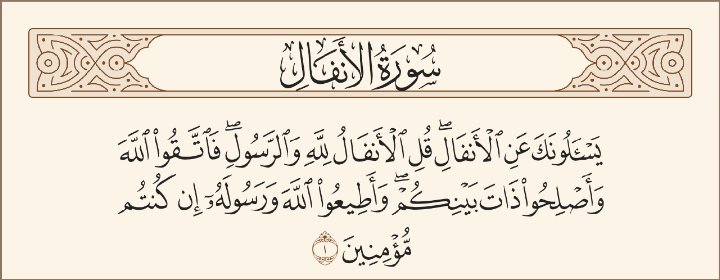 سُورَةُ الأَنفَالِ
يَسْـَٔلُونَكَ عَنِ ٱلْأَنفَالِ ۖ قُلِ ٱلْأَنفَالُ لِلَّهِ وَٱلرَّسُولِ ۖ فَٱتَّقُوا۟ ٱللَّهَ
وَأَصْلِحُوا۟ ذَاتَ بَيْنِكُمْ ۖ وَأَطِيعُوا۟ ٱللَّهَ وَرَسُولَهُۥٓ إِن كُنتُم
مُّؤْمِنِينَ ١